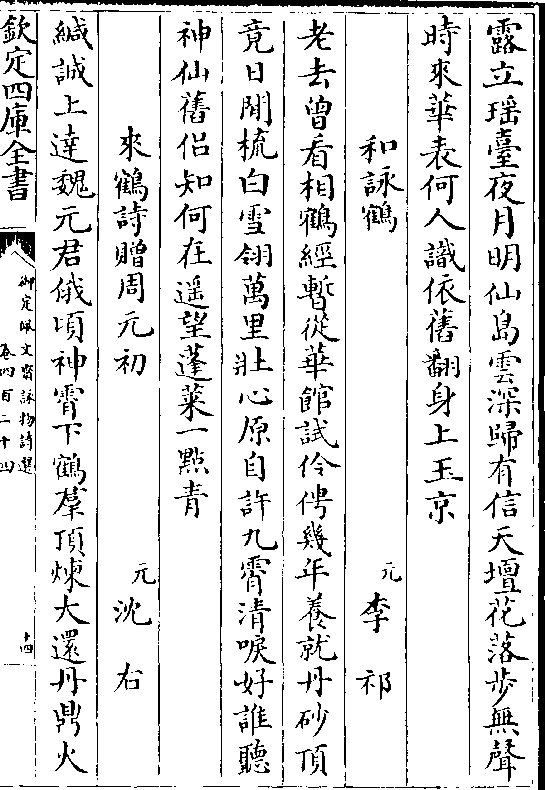 露立瑶臺夜月明仙島雲深歸有信天壇花落步無聲
時來華表何人識依舊翻身上玉京
和詠鶴 元 李祁
老去曾看相鶴經暫從華館試伶俜幾年養就丹砂頂
竟日閒梳白雪翎萬里壯心原自許九霄清唳好誰聽
神仙舊侣知何在遥望蓬萊一點青
來鶴詩贈周元初 元 沈右
緘誠上達魏元君俄頃神霄下鶴羣頂煉大還丹鼎火
欽定四庫全書
御定佩文齋詠物詩選
卷四百二十四
十四